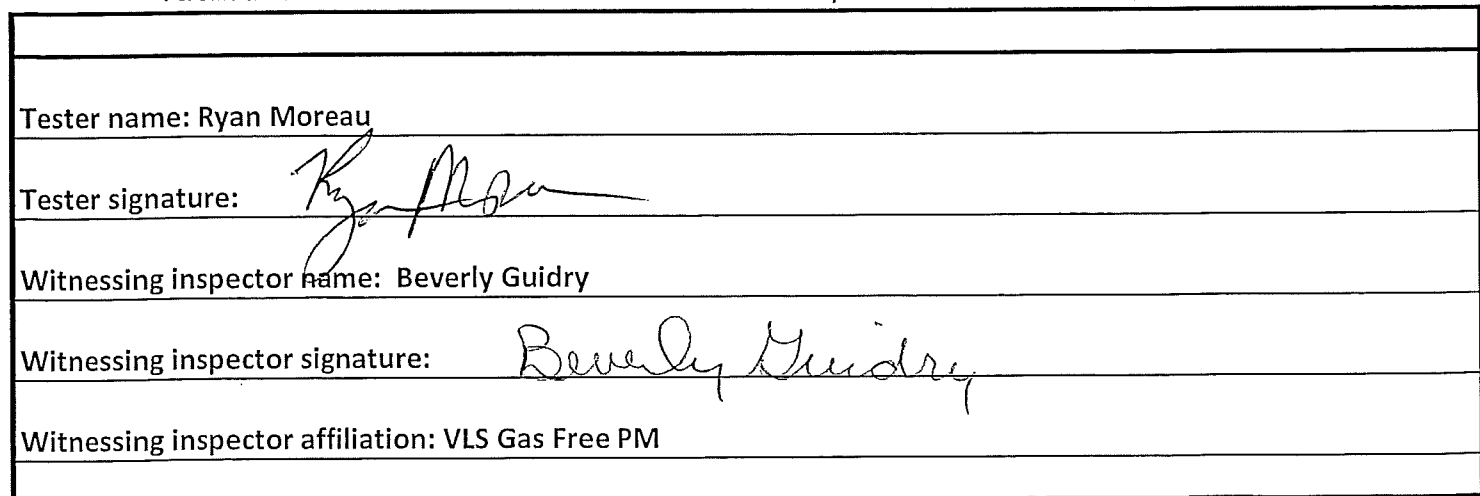 Tester name: Ryan Moreau
Tester signature: Ryan Moreau
Witnessing inspector name: Beverly Guidry
Witnessing inspector signature: Beverly Guidry
Witnessing inspector affiliation: VLS Gas Free PM